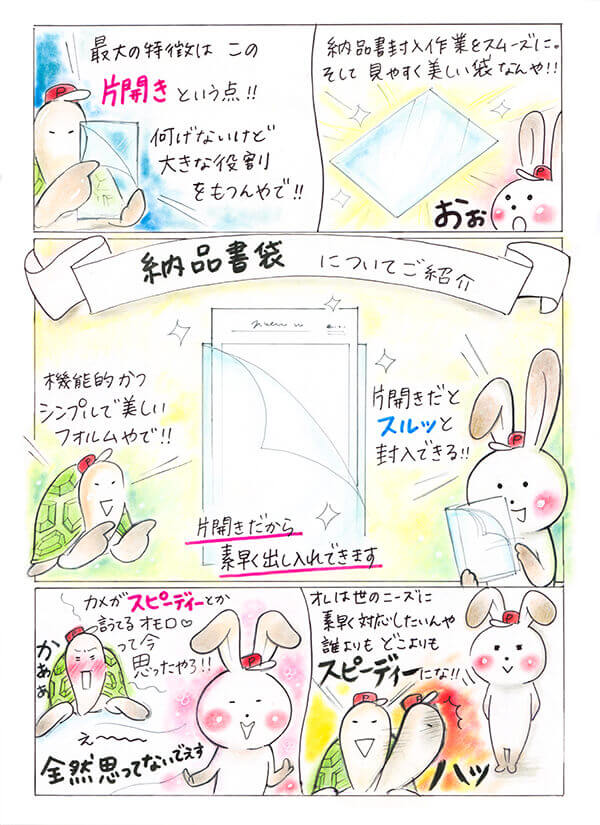 納品書封入作業をスムーズに。
そして 見やすく美しい袋なんや!!
おぉ
最大の特徴は この
片開き という点!!
何げないけど
大きな役割
をもつんやで!!
納品書袋 についてご紹介
片開きだと
スルッと
封入できる!!
機能的かつ
シンプルで美しい
フォルムやで!!
片開きだから
素早く出し入れできます
オレは世のニーズに
素早く対応したいんや
誰よりも どこよりも
スピーディーにな!!
ハッ
カメがスピーディーとか
言うてる オモロ♡
って今
思ったやろ!!
かあぁ
え〜〜
全然思ってないでえす
P
P
P
P
P
P
P